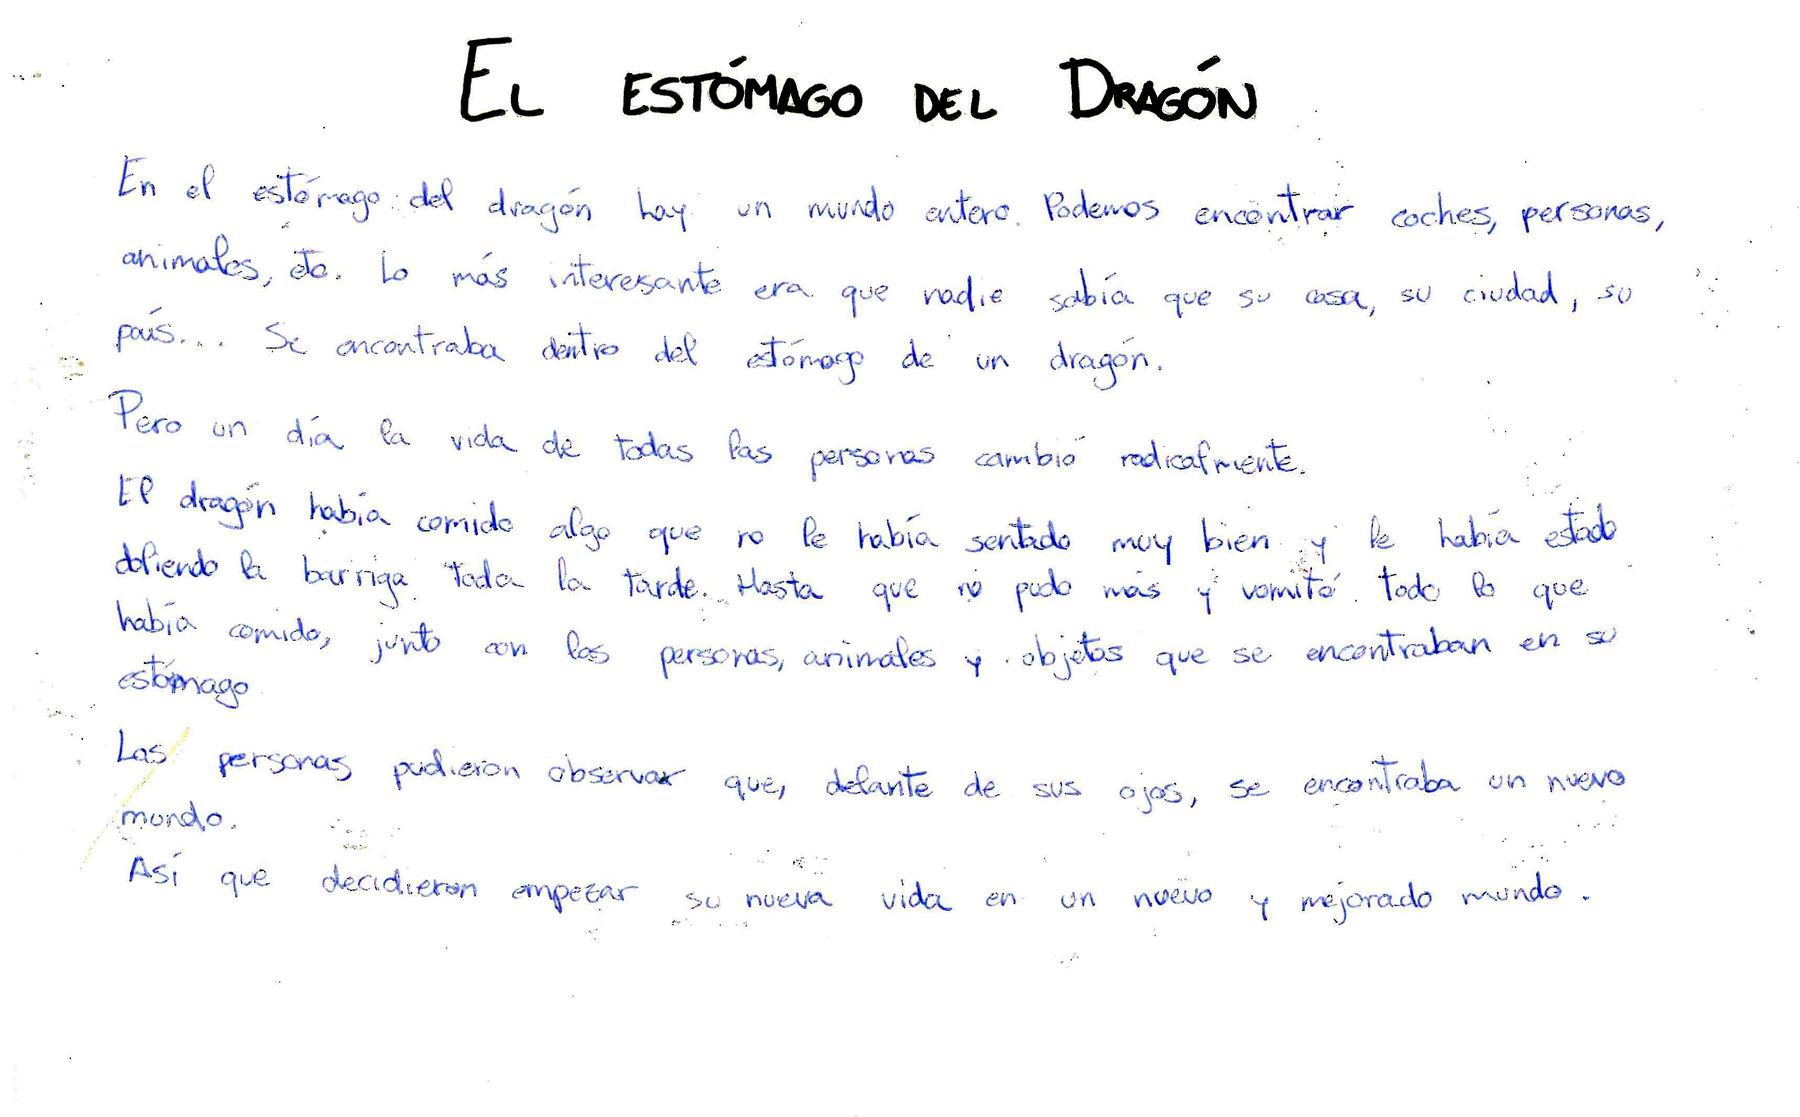 EL ESTÓMAGO DEL DRAGÓN
En el estómago del dragón hay un mundo entero. Podemos encontrar coches, personas,
animales, etc. Lo más interesante era que nadie sabía que su casa, su ciudad, su
país... Se encontraba dentro del estómago de un dragón.
Pero un día la vida de todas las personas cambió radicalmente.
El dragón había comido algo que no le había sentado muy bien y le había estado
doliendo la barriga toda la tarde. Hasta que no pudo más y vomitó todo lo que
había comido, junto con las personas, animales y objetos que se encontraban en su
estómago
Las personas pudieron observar que, delante de sus ojos, se encontraba un nuevo
mundo.
Así que decidieron empezar su nueva vida en un nuevo y mejorado mundo.